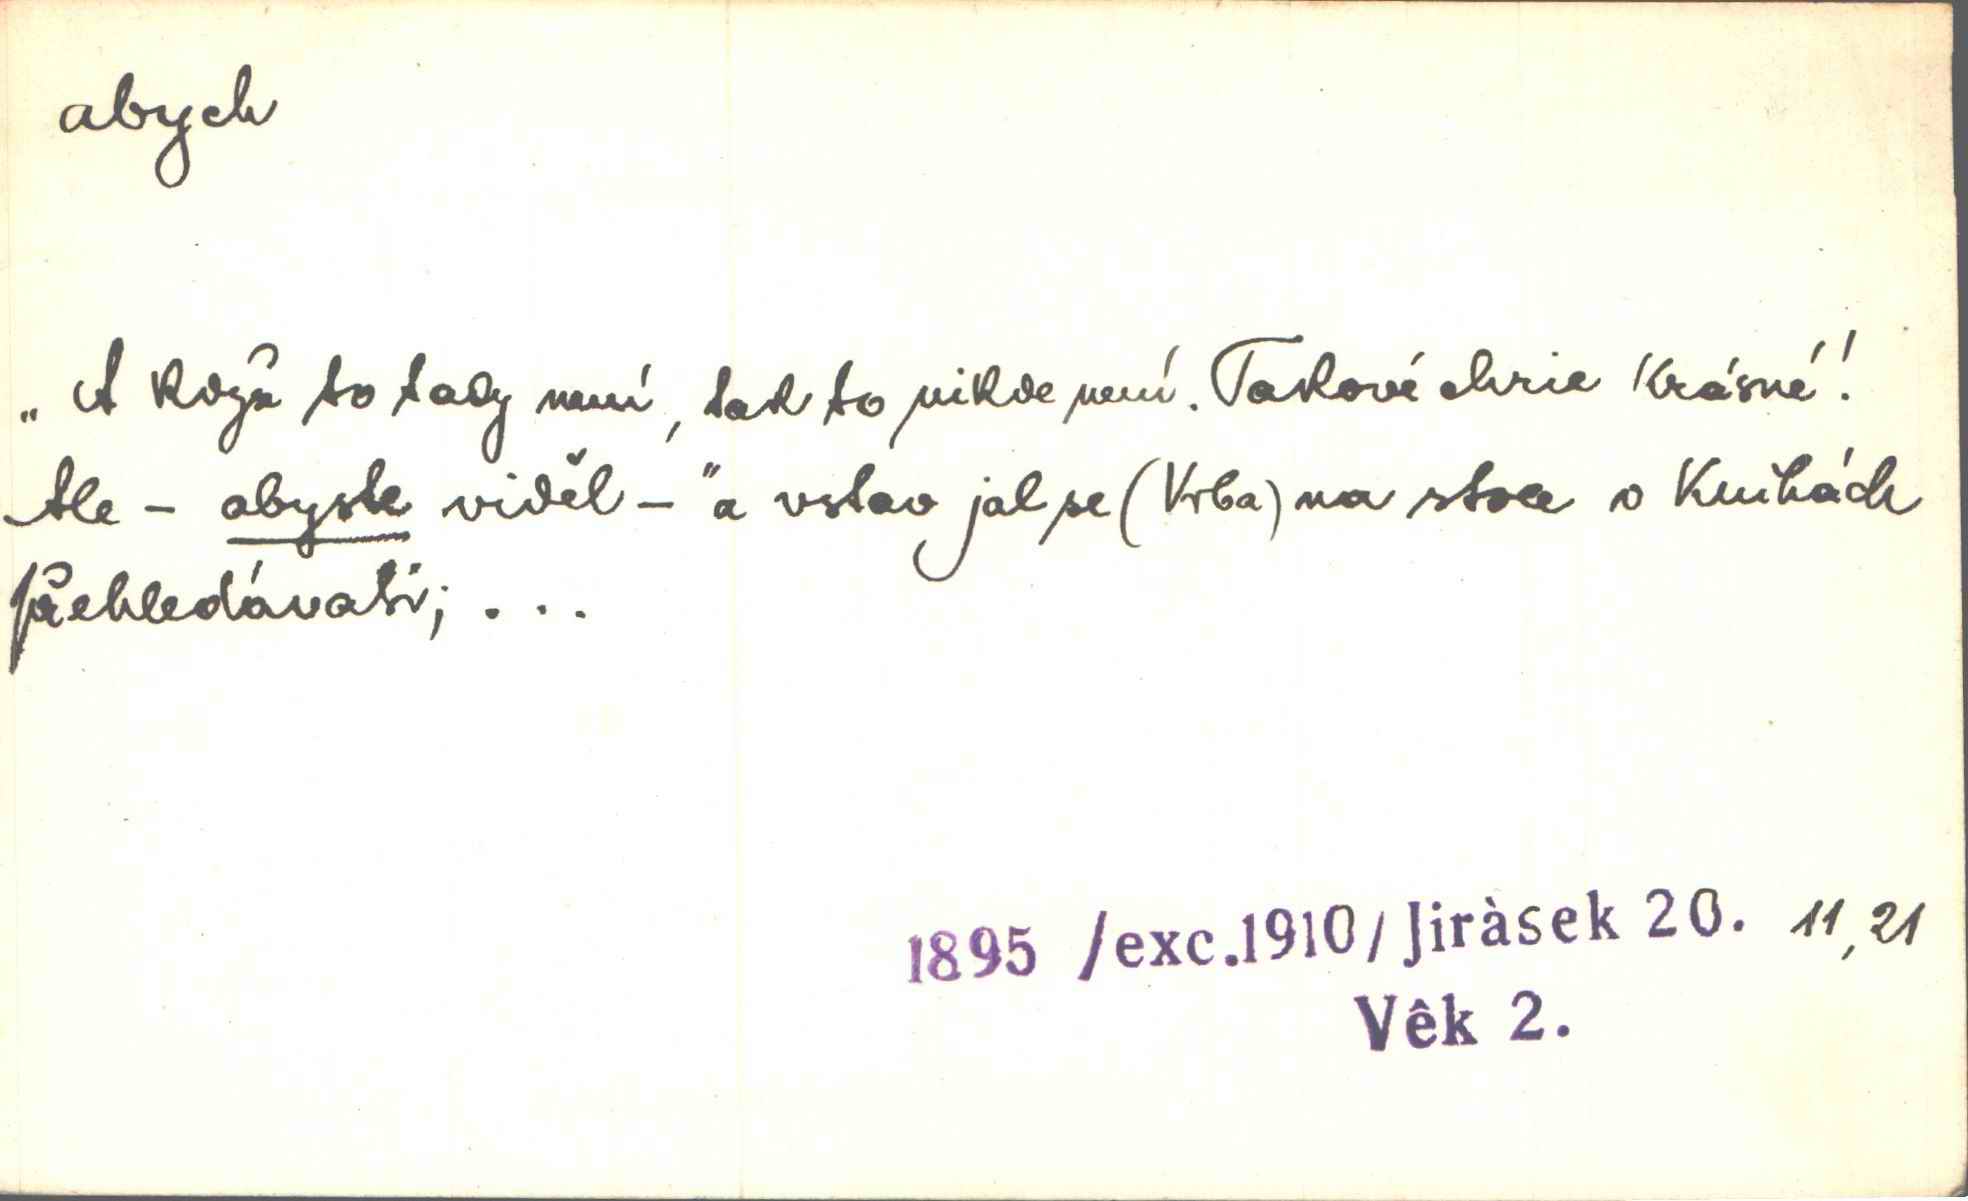 abych
„A když to tady není, tak to nikde není. Takové chrie krásné!
Ale – abyste viděl –" a vstav jal se (Vrba) na stole v knihách
přehledávati; . . .
1895 /exc.1910/ Jiràsek 20. 11,21
Vêk 2.